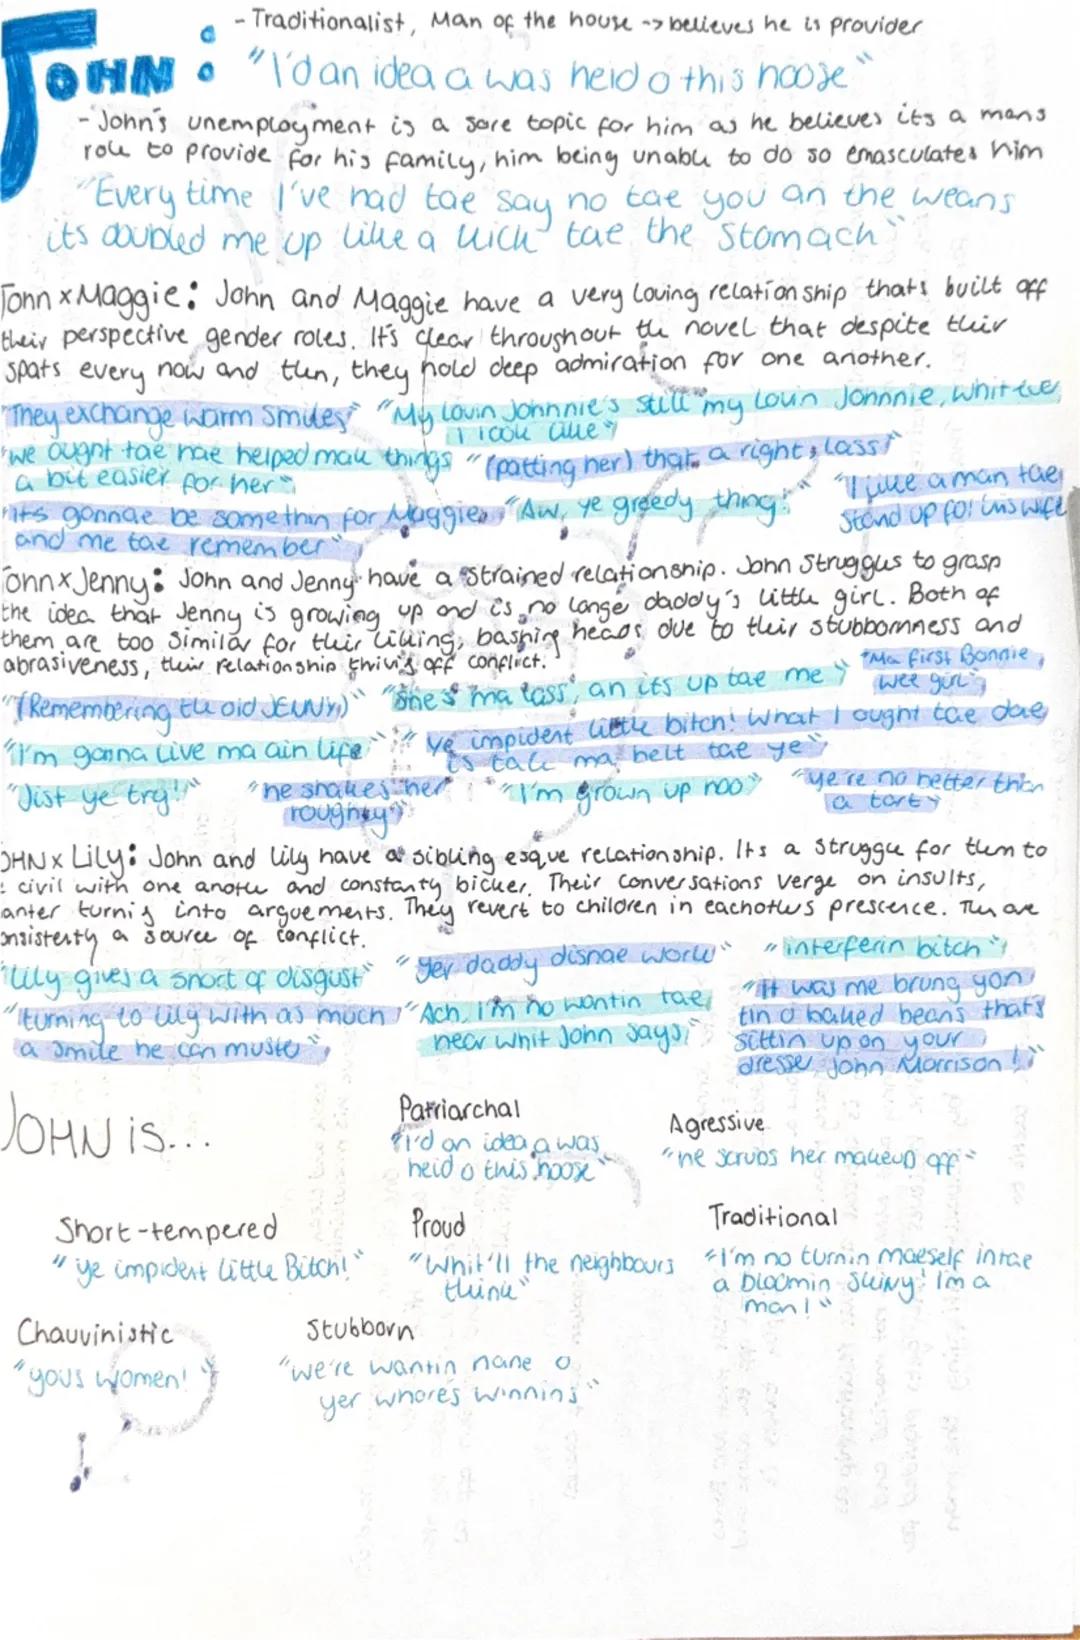 JOHN:
- Traditionalist, Man of the house -> believes he is provider
"I'd an idea a was heid o this hoose"
- John's unemployment is a sore topic for him as he believes its a mans
role to provide for his family, him being unable to do so emasculates him
"Every time I've had tae say no tae you an the weans
its doubled me up like a kick tae the stomach"
John x Maggie: John and Maggie have a very loving relationship thats built off
their perspective gender roles. It's clear throughout the novel that despite their
spats every now and then, they hold deep admiration for one another.
"They exchange warm smiles" "My lovin Johnnie's still my lovin Johnnie, whitever
I look like"
"we ought tae hae helped mak things "(patting her) that, a right, lass"
a bit easier for her"
"its gonnae be somethin for Maggie "Aw, ye greedy thing!" "I like a man tae
and me tae remember" stand up for his wife
John x Jenny: John and Jenny have a strained relationship. John struggles to grasp
the idea that Jenny is growing up and is no longe daddy's little girl. Both of
them are too similar for their liking, bashing heads due to their stubbornness and
abrasiveness, their relationship thrivis off conflict. "Ma first Bonnie
wee girl"
"(Remembering the old JENNY)" "She's ma lass, an its up tae me"
"I'm gonna live ma ain life" "Ye impident little bitch! What I ought tae dae
is tak ma belt tae ye"
"Jist ye try!" "he shakes her "I'm grown up noo" "ye're no better than
roughly" a tart"
OHN x Lily: John and Lily have a sibling esque relationship. Its a struggle for them to
civil with one another and constanty bicker. Their conversations verge on insults,
anter turnig into arguements. They revert to children in eachothers prescence. They are
onsistently a source of conflict.
"Lily gives a snort of disgust" "yer daddy disnae work" "interferin bitch"
"turning to Lily with as much "Ach, I'm no wantin tae "It was me brung yon
a smile he can muster" hear whit John says" tin o baked beans thats
sittin up on your
dresser, John Morrison!"
JOHN is...
Patriarchal
"I'd an idea a was
heid o this hoose"
Agressive
"he scrubs her makeup off"
Short-tempered
"ye impident little Bitch!"
Proud
"Whit'll the neighbours
think"
Traditional
"I'm no turnin maeself intae
a bloomin skivvy! I'm a
man!"
Chauvinistic
"yous women!"
Stubborn
"we're wantin nane o
yer whore's winnins"